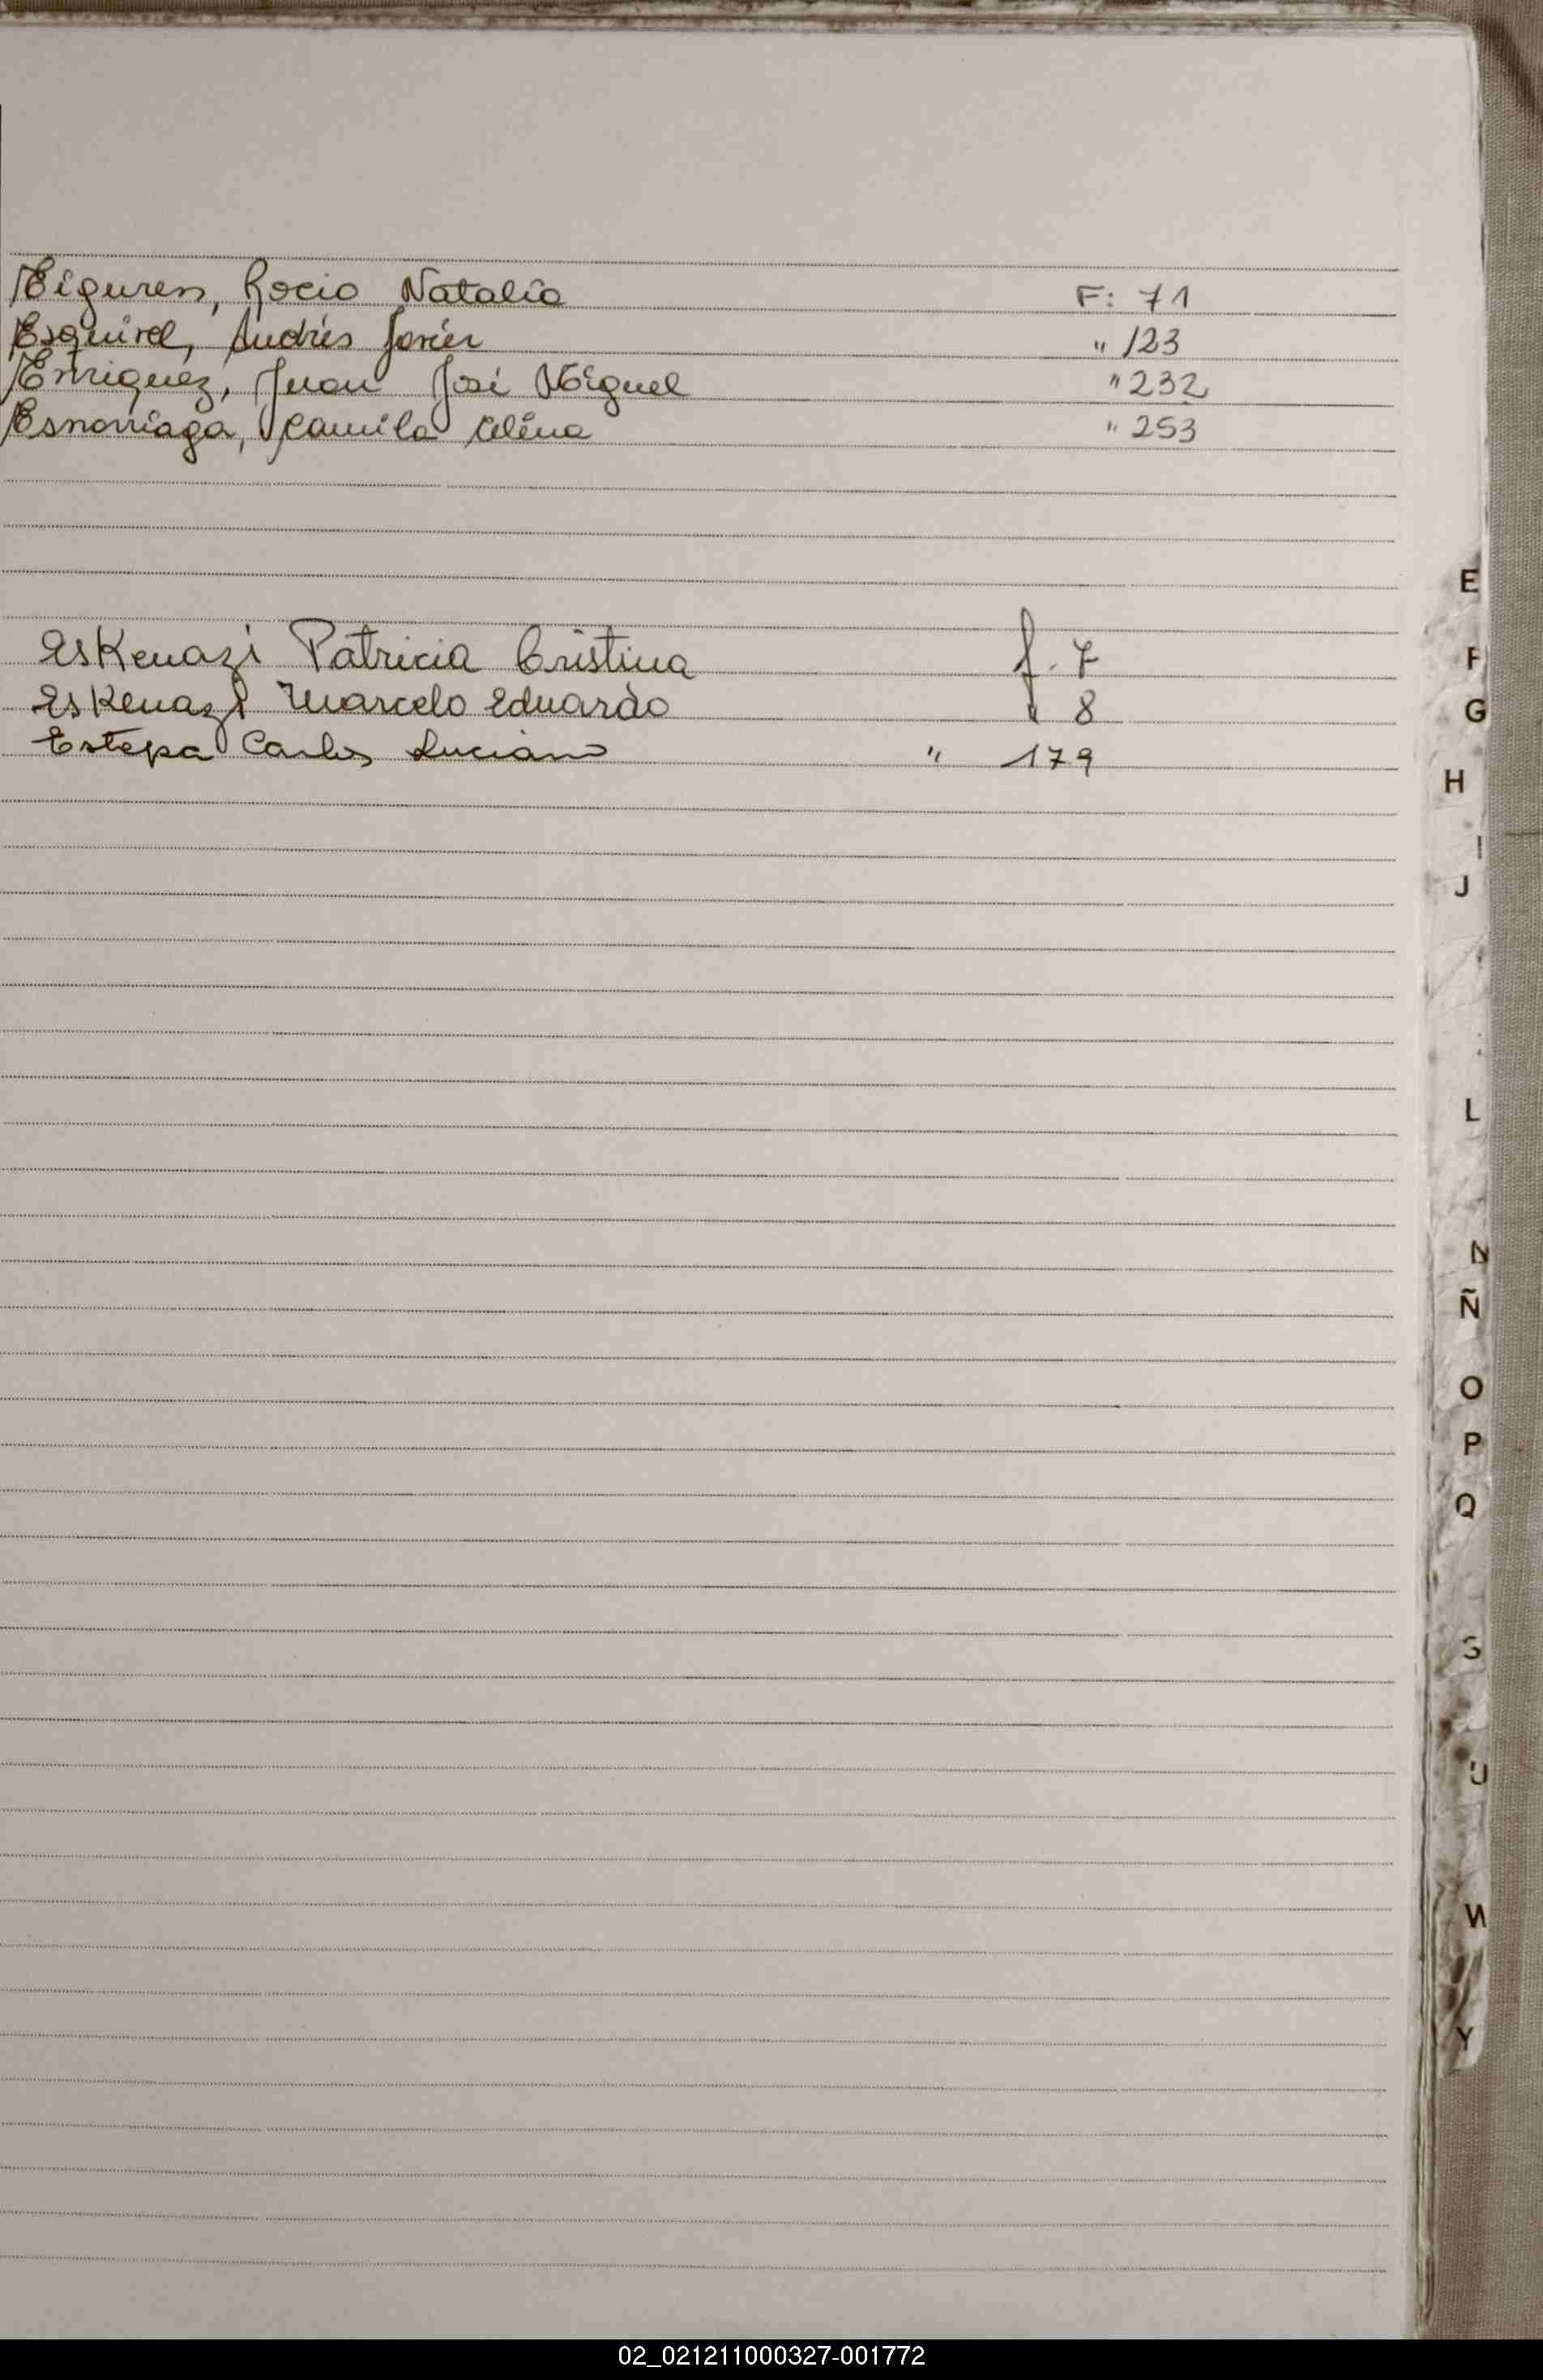 Eiguren, Rocio Natalia F: 71
Esquivel, Andrés Javier " 123
Enriquez, Juan José Miguel " 232
Esnarriaga, Camila Celina " 253
Eskenazi Patricia Cristina f. 7
Eskenazi Marcelo Eduardo " 8
Estepa Carlos Luciano " 179
E
F
G
H
I
J
L
N
Ñ
O
P
Q
S
U
W
Y
02_021211000327-001772